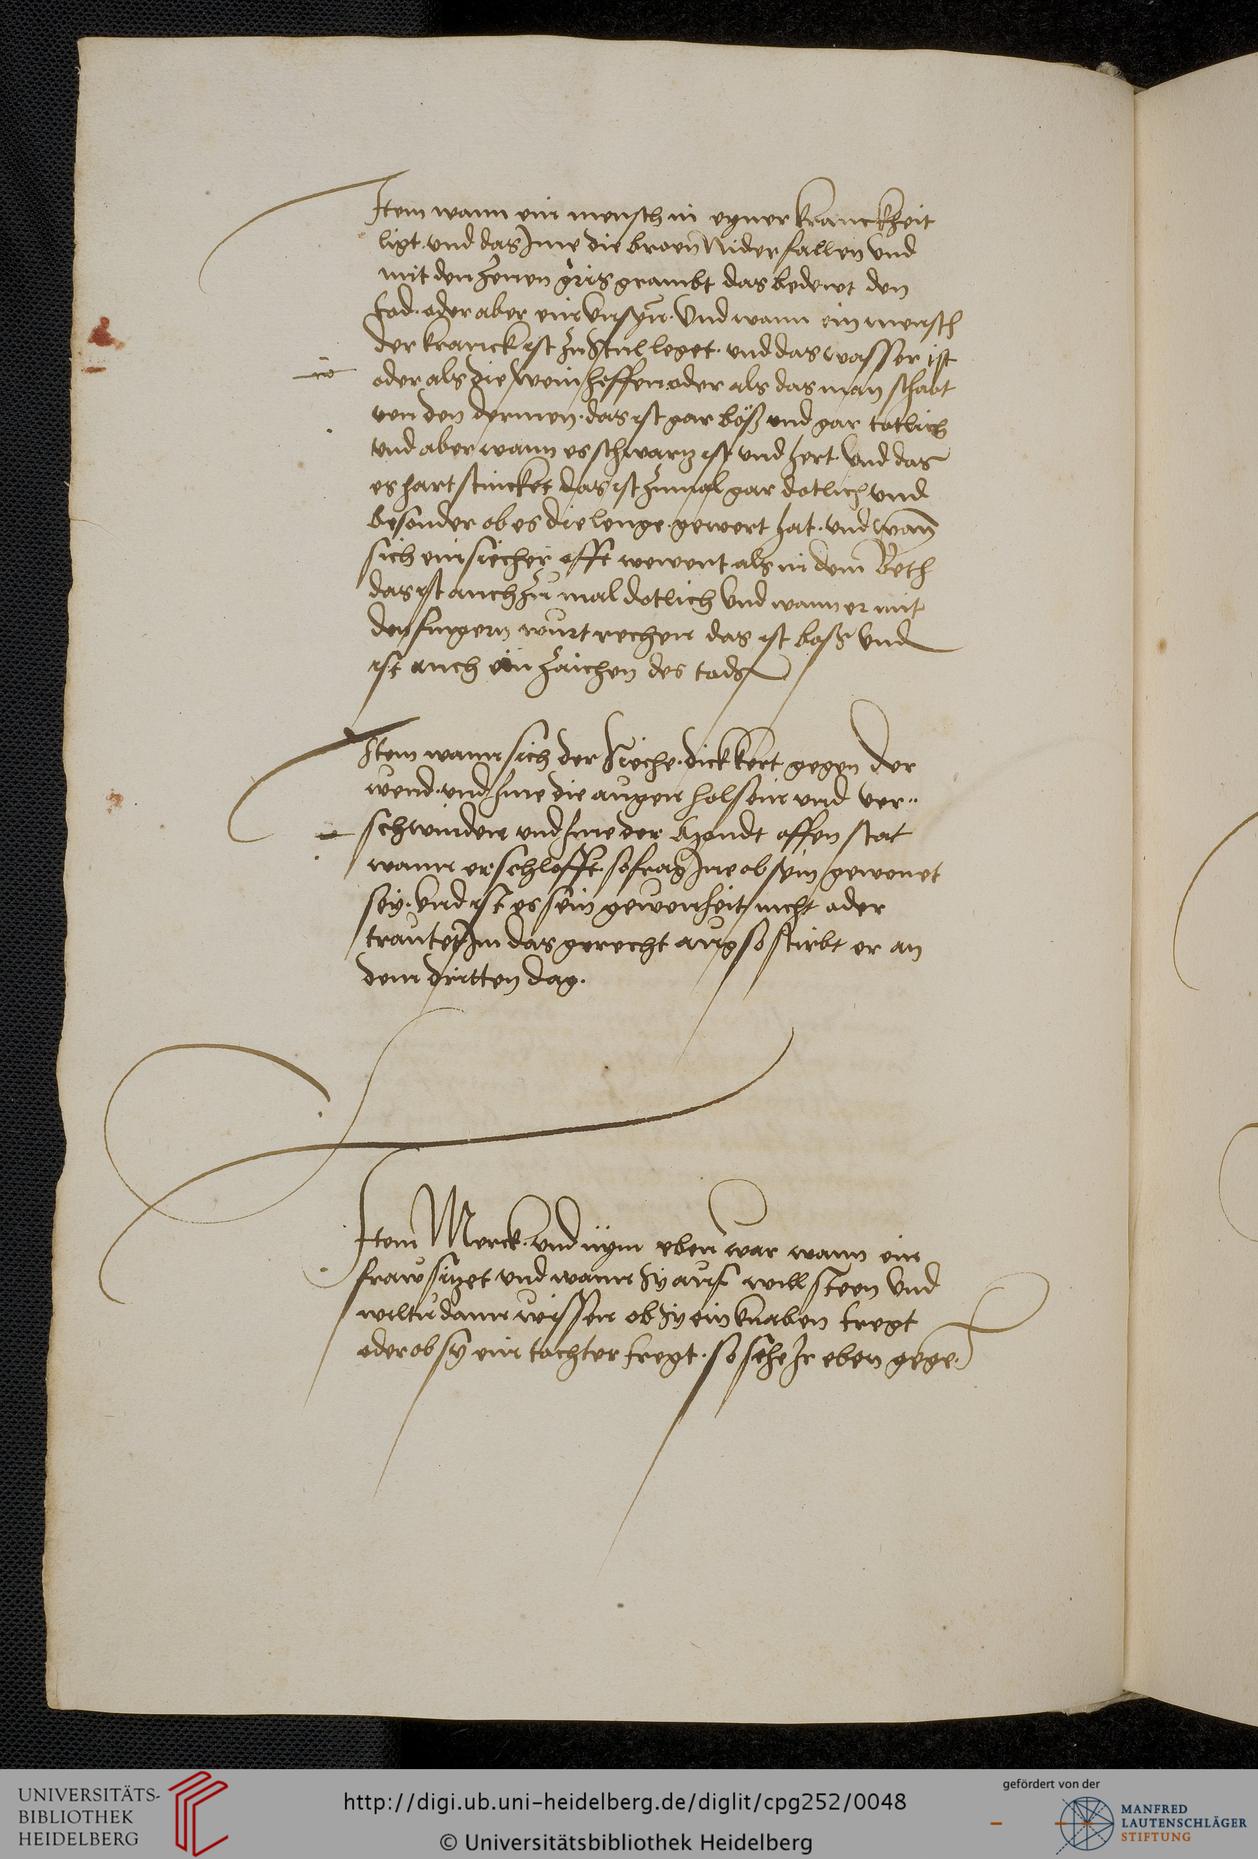 Item wann ein mensch in eyner kranckheit
ligt · und das Ime die broen Nider fallen Und
mit den zenen gris grambt das bedewt den
tod · oder aber ein unsyn · Und wann ein mensch
der kranck ist zu Stul leget · und das wasser ist
oder als die wein heffen oder als das man schabt
von den dermen · das ist gar böß und gar totlich
und aber wann es schwartz ist und hert Und das
es hart stincket das ist zumal gar dotlich und
besonder ob es die lenge gewert hat · und wan
sich ein siecher offt wewent als in dem Beth
das ist auch zu mal dotlich Und wann er mit
den fingern wurt rechen das ist boß Und
ist auch ein zaichen des tods
Item wann sich der Sieche dick kert gegen der
wend · und Ime die augen hol sein und ver-
schwinden und Ime der Mondt offen stat
wann er schlofft so frag Ine ob sein gewonet
sey · Und ist es sein gewonheit nicht oder
trautet Im das gerecht aug so stirbt er an
dem dritten dag ·
Item Merck · und nym eben war wann ein
fraw sitzet und wann Sy auf will steen Und
wiltu dann wissen ob Sy ein knaben tregt
oder ob sy ein tochter tregt · so sehe Ir eben gege ·
UNIVERSITÄTS-
BIBLIOTHEK
HEIDELBERG
http://digi.ub.uni-heidelberg.de/diglit/cpg252/0048
© Universitätsbibliothek Heidelberg
gefördert von der
MANFRED
LAUTENSCHLÄGER
STIFTUNG